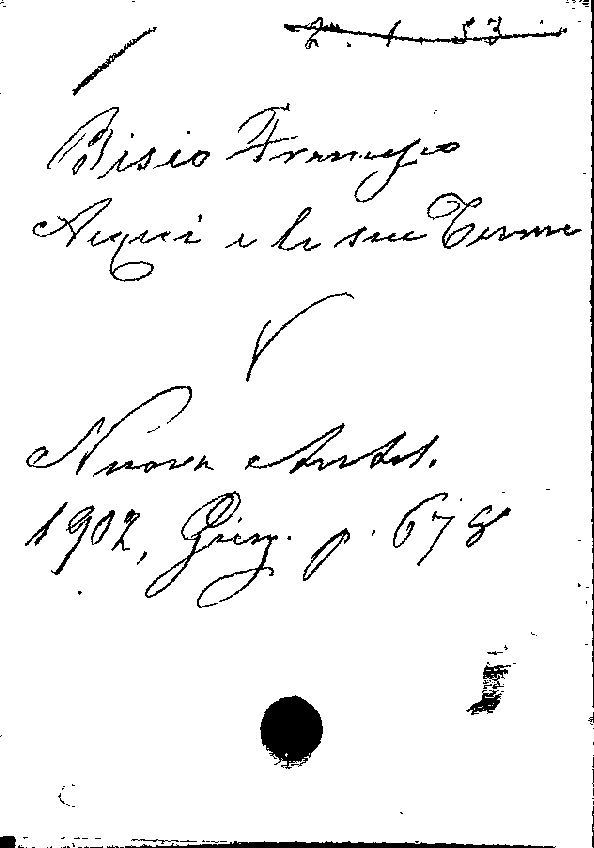 Bisio Francesco
Acqui e le sue Terme
V
Nuova Antol.
1902, Giug. p. 678